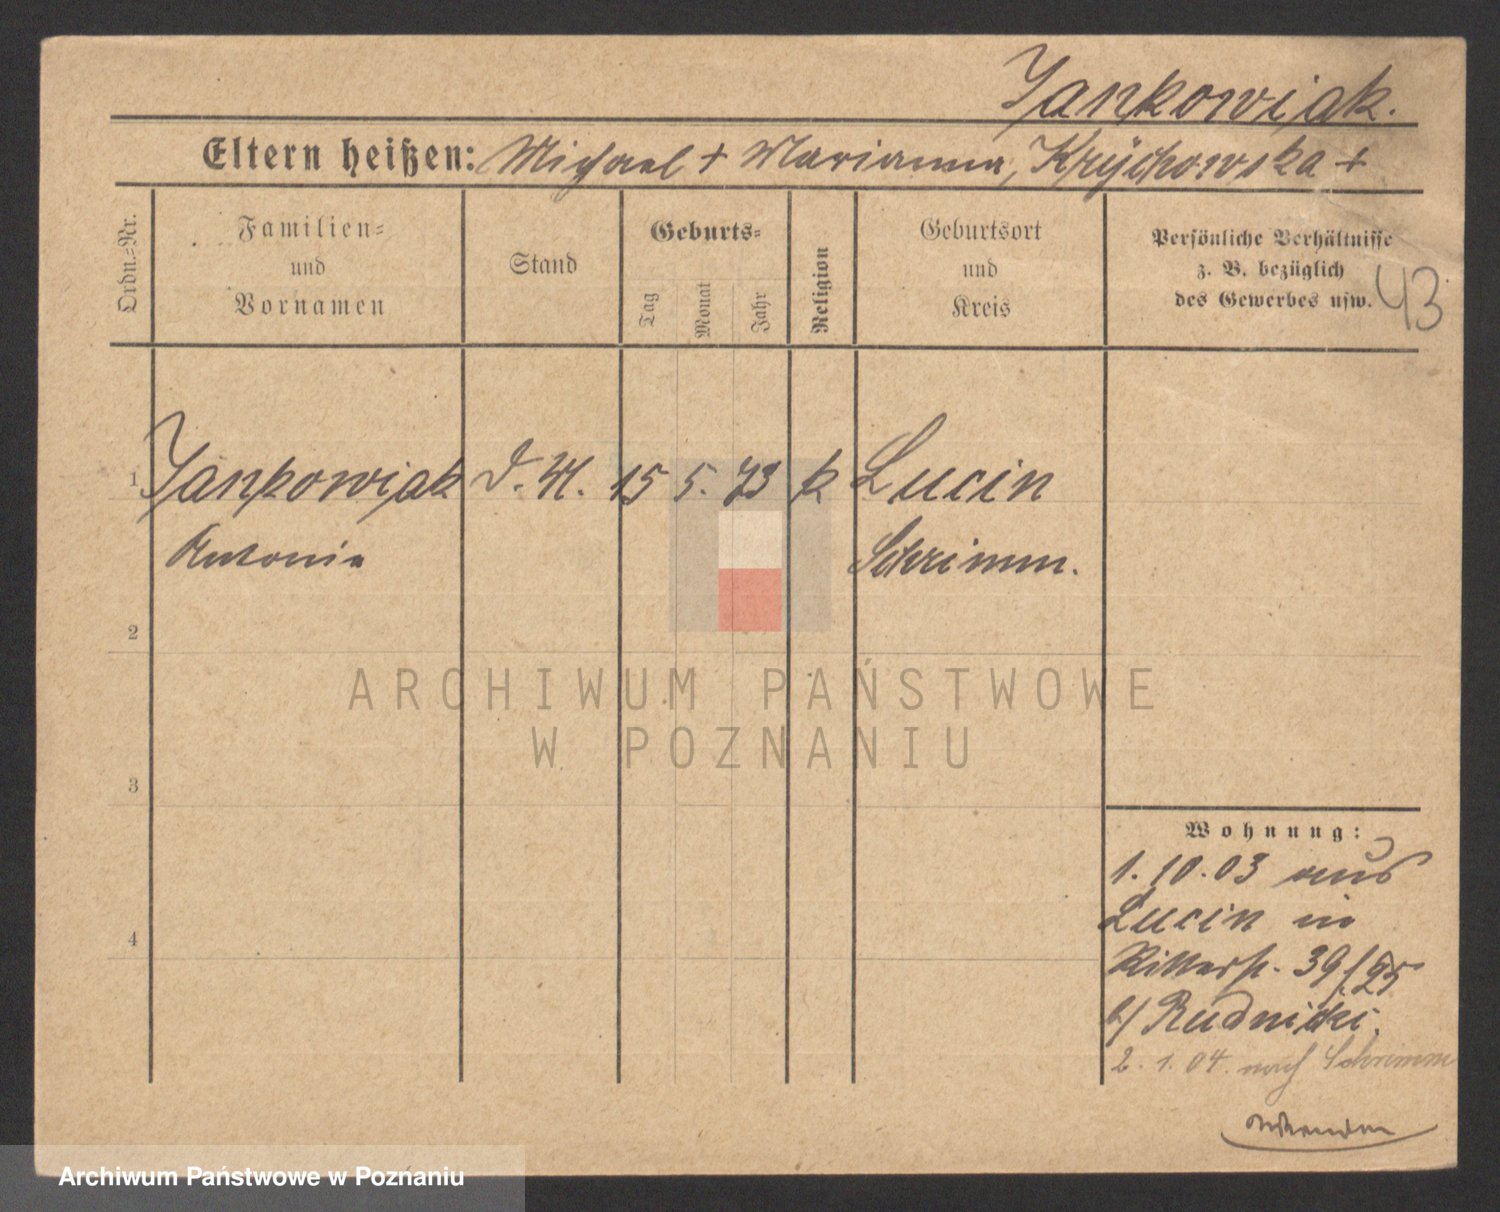 Jankowiak.
Eltern heißen: Michael + Marianna, Krÿchowska +
Ordn.=Nr.
Familien=
und
Vornamen
Stand
Geburts=
Tag
Monat
Jahr
Religion
Geburtsort
und
Kreis
Persönliche Verhältnisse
z. B. bezüglich
des Gewerbes usw.
43
1 Jankowiak D. M. 15 5. 73 k Lucin
Antonie Schrimm.
2
ARCHIWUM PAŃSTWOWE
W POZNANIU
3
Wohnung:
1. 10. 03 aus
Lucin in
4
Ritterst. 39
b/ Rudnicki.
2. 1. 04. nach Schrimm
Archiwum Państwowe w Poznaniu